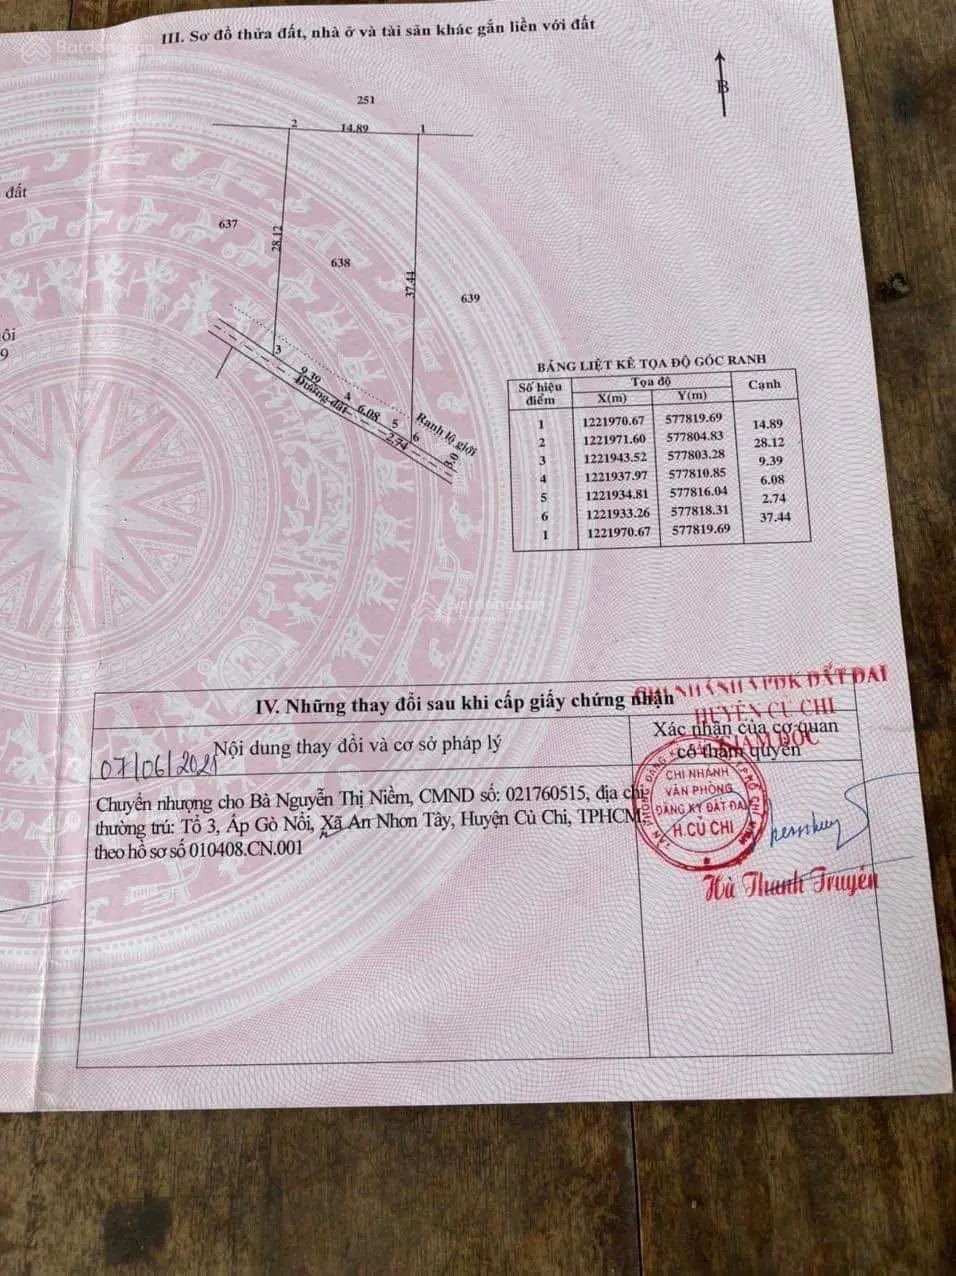 Batdongsan
by PropertyGuru
III. Sơ đồ thửa đất, nhà ở và tài sản khác gắn liền với đất
B
251
2
14.89
1
đất
637
28.12
638
37.44
639
ôi
9
3
9.39
Đường đất
4
6.08
5
2.74
6
Ranh lộ giới
3.0
BẢNG LIỆT KÊ TỌA ĐỘ GÓC RANH
Số hiệu điểm Tọa độ Cạnh
X(m) Y(m)
1 1221970.67 577819.69
14.89
2 1221971.60 577804.83
28.12
3 1221943.52 577803.28
9.39
4 1221937.97 577810.85
6.08
5 1221934.81 577816.04
2.74
6 1221933.26 577818.31
37.44
1 1221970.67 577819.69
Batdongsan
by PropertyGuru
IV. Những thay đổi sau khi cấp giấy chứng nhận
CHI NHÁNH VPĐK ĐẤT ĐAI
HUYỆN CỦ CHI
GIÁM ĐỐC
Nội dung thay đổi và cơ sở pháp lý
Xác nhận của cơ quan
có thẩm quyền
07/06/2021
Chuyển nhượng cho Bà Nguyễn Thị Niềm, CMND số: 021760515, địa chỉ
thường trú: Tổ 3, Ấp Gò Nổi, Xã An Nhơn Tây, Huyện Củ Chi, TPHCM;
theo hồ sơ số 010408.CN.001
CHI NHÁNH
VĂN PHÒNG
ĐĂNG KÝ ĐẤT ĐAI
H.CỦ CHI
Hà Thanh Truyền